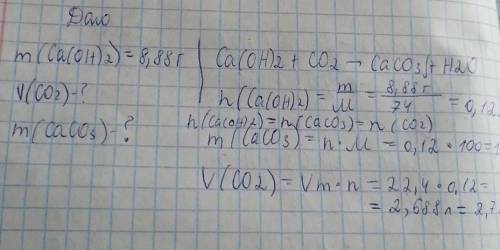 Дано
m(Ca(OH)2)=8,88г
V(CO2)-?
m(CaCO3)-?
Ca(OH)2 + CO2 → CaCO3↓+H2O
n(Ca(OH)2) = m/M = 8,88г/74 = 0,12
n(Ca(OH)2)=n(CaCO3)=n(CO2)
m(CaCO3)= n·M = 0,12·100=1
V(CO2)=Vm·n = 22,4·0,12=
= 2,688л = 2,7